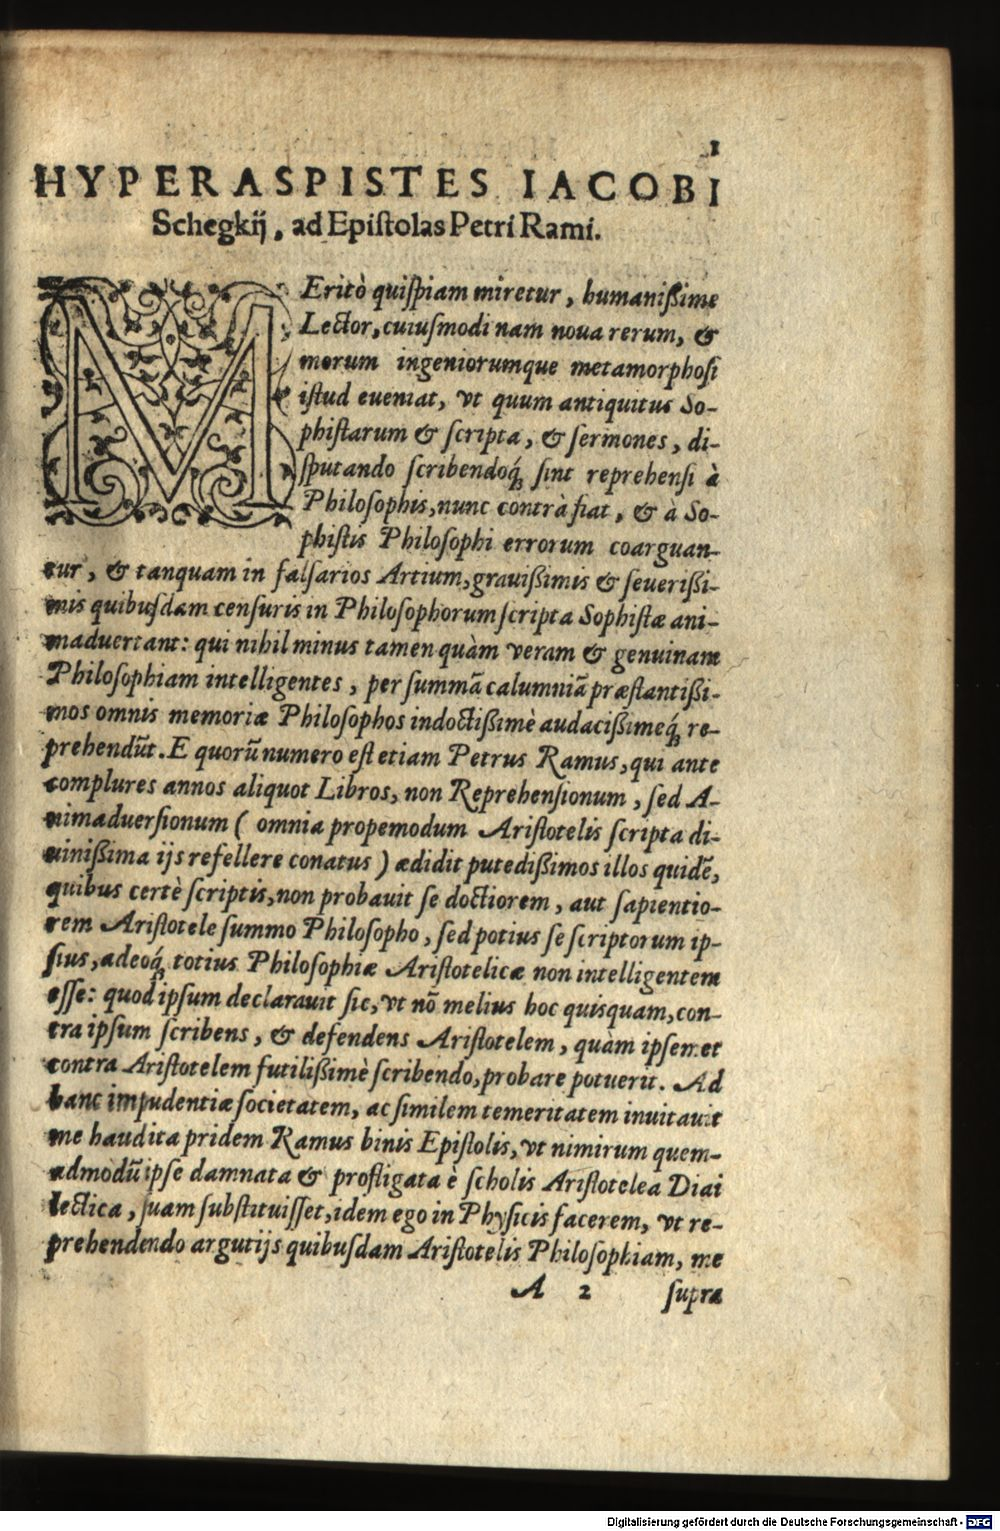 1
HYPERASPISTES IACOBI
Schegkij, ad Epiſtolas Petri Rami.
MEritò quiſpiam miretur, humanißime
Lector, cuiuſmodi nam noua rerum, &
morum ingeniorumque metamorphoſi
iſtud eueniat, vt quum antiquitus So-
phiſtarum & ſcripta, & ſermones, di-
ſputando ſcribendoq́; ſint reprehenſi à
Philoſophis, nunc contrà fiat, & à So-
phiſtis Philoſophi errorum coarguan-
tur, & tanquam in falſarios Artium, grauißimis & ſeuerißi-
mis quibuſdam cenſuris in Philoſophorum ſcripta Sophiſtæ ani-
maduertant: qui nihil minus tamen quàm veram & genuinam
Philoſophiam intelligentes, per ſummā calumniā præſtantißi-
mos omnis memoriæ Philoſophos indoctißimè audacißimeq́; re-
prehendūt. E quorū numero eſt etiam Petrus Ramus, qui ante
complures annos aliquot Libros, non Reprehenſionum, ſed A-
nimaduerſionum ( omnia propemodum Ariſtotelis ſcripta di-
uinißima ijs refellere conatus ) ædidit putedißimos illos quidē,
quibus certè ſcriptis, non probauit ſe doctiorem, aut ſapientio-
rem Ariſtotele ſummo Philoſopho, ſed potius ſe ſcriptorum ip-
ſius, adeoq́; totius Philoſophiæ Ariſtotelicæ non intelligentem
eſſe: quod ipſum declarauit ſic, vt nō melius hoc quisquam, con-
tra ipſum ſcribens, & defendens Ariſtotelem, quàm ipſemet
contra Ariſtotelem futilißimè ſcribendo, probare potuerit. Ad
hanc impudentiæ ſocietatem, ac ſimilem temeritatem inuitauit
me haud ita pridem Ramus binis Epiſtolis, vt nimirum quem-
admodū ipſe damnata & profligata è ſcholis Ariſtotelea Diai
lectica, ſuam ſubſtituiſſet, idem ego in Phyſicis facerem, vt re-
prehendendo argutijs quibuſdam Ariſtotelis Philoſophiam, me
A 2 ſupra
Digitalisierung gefördert durch die Deutsche Forschungsgemeinschaft - DFG